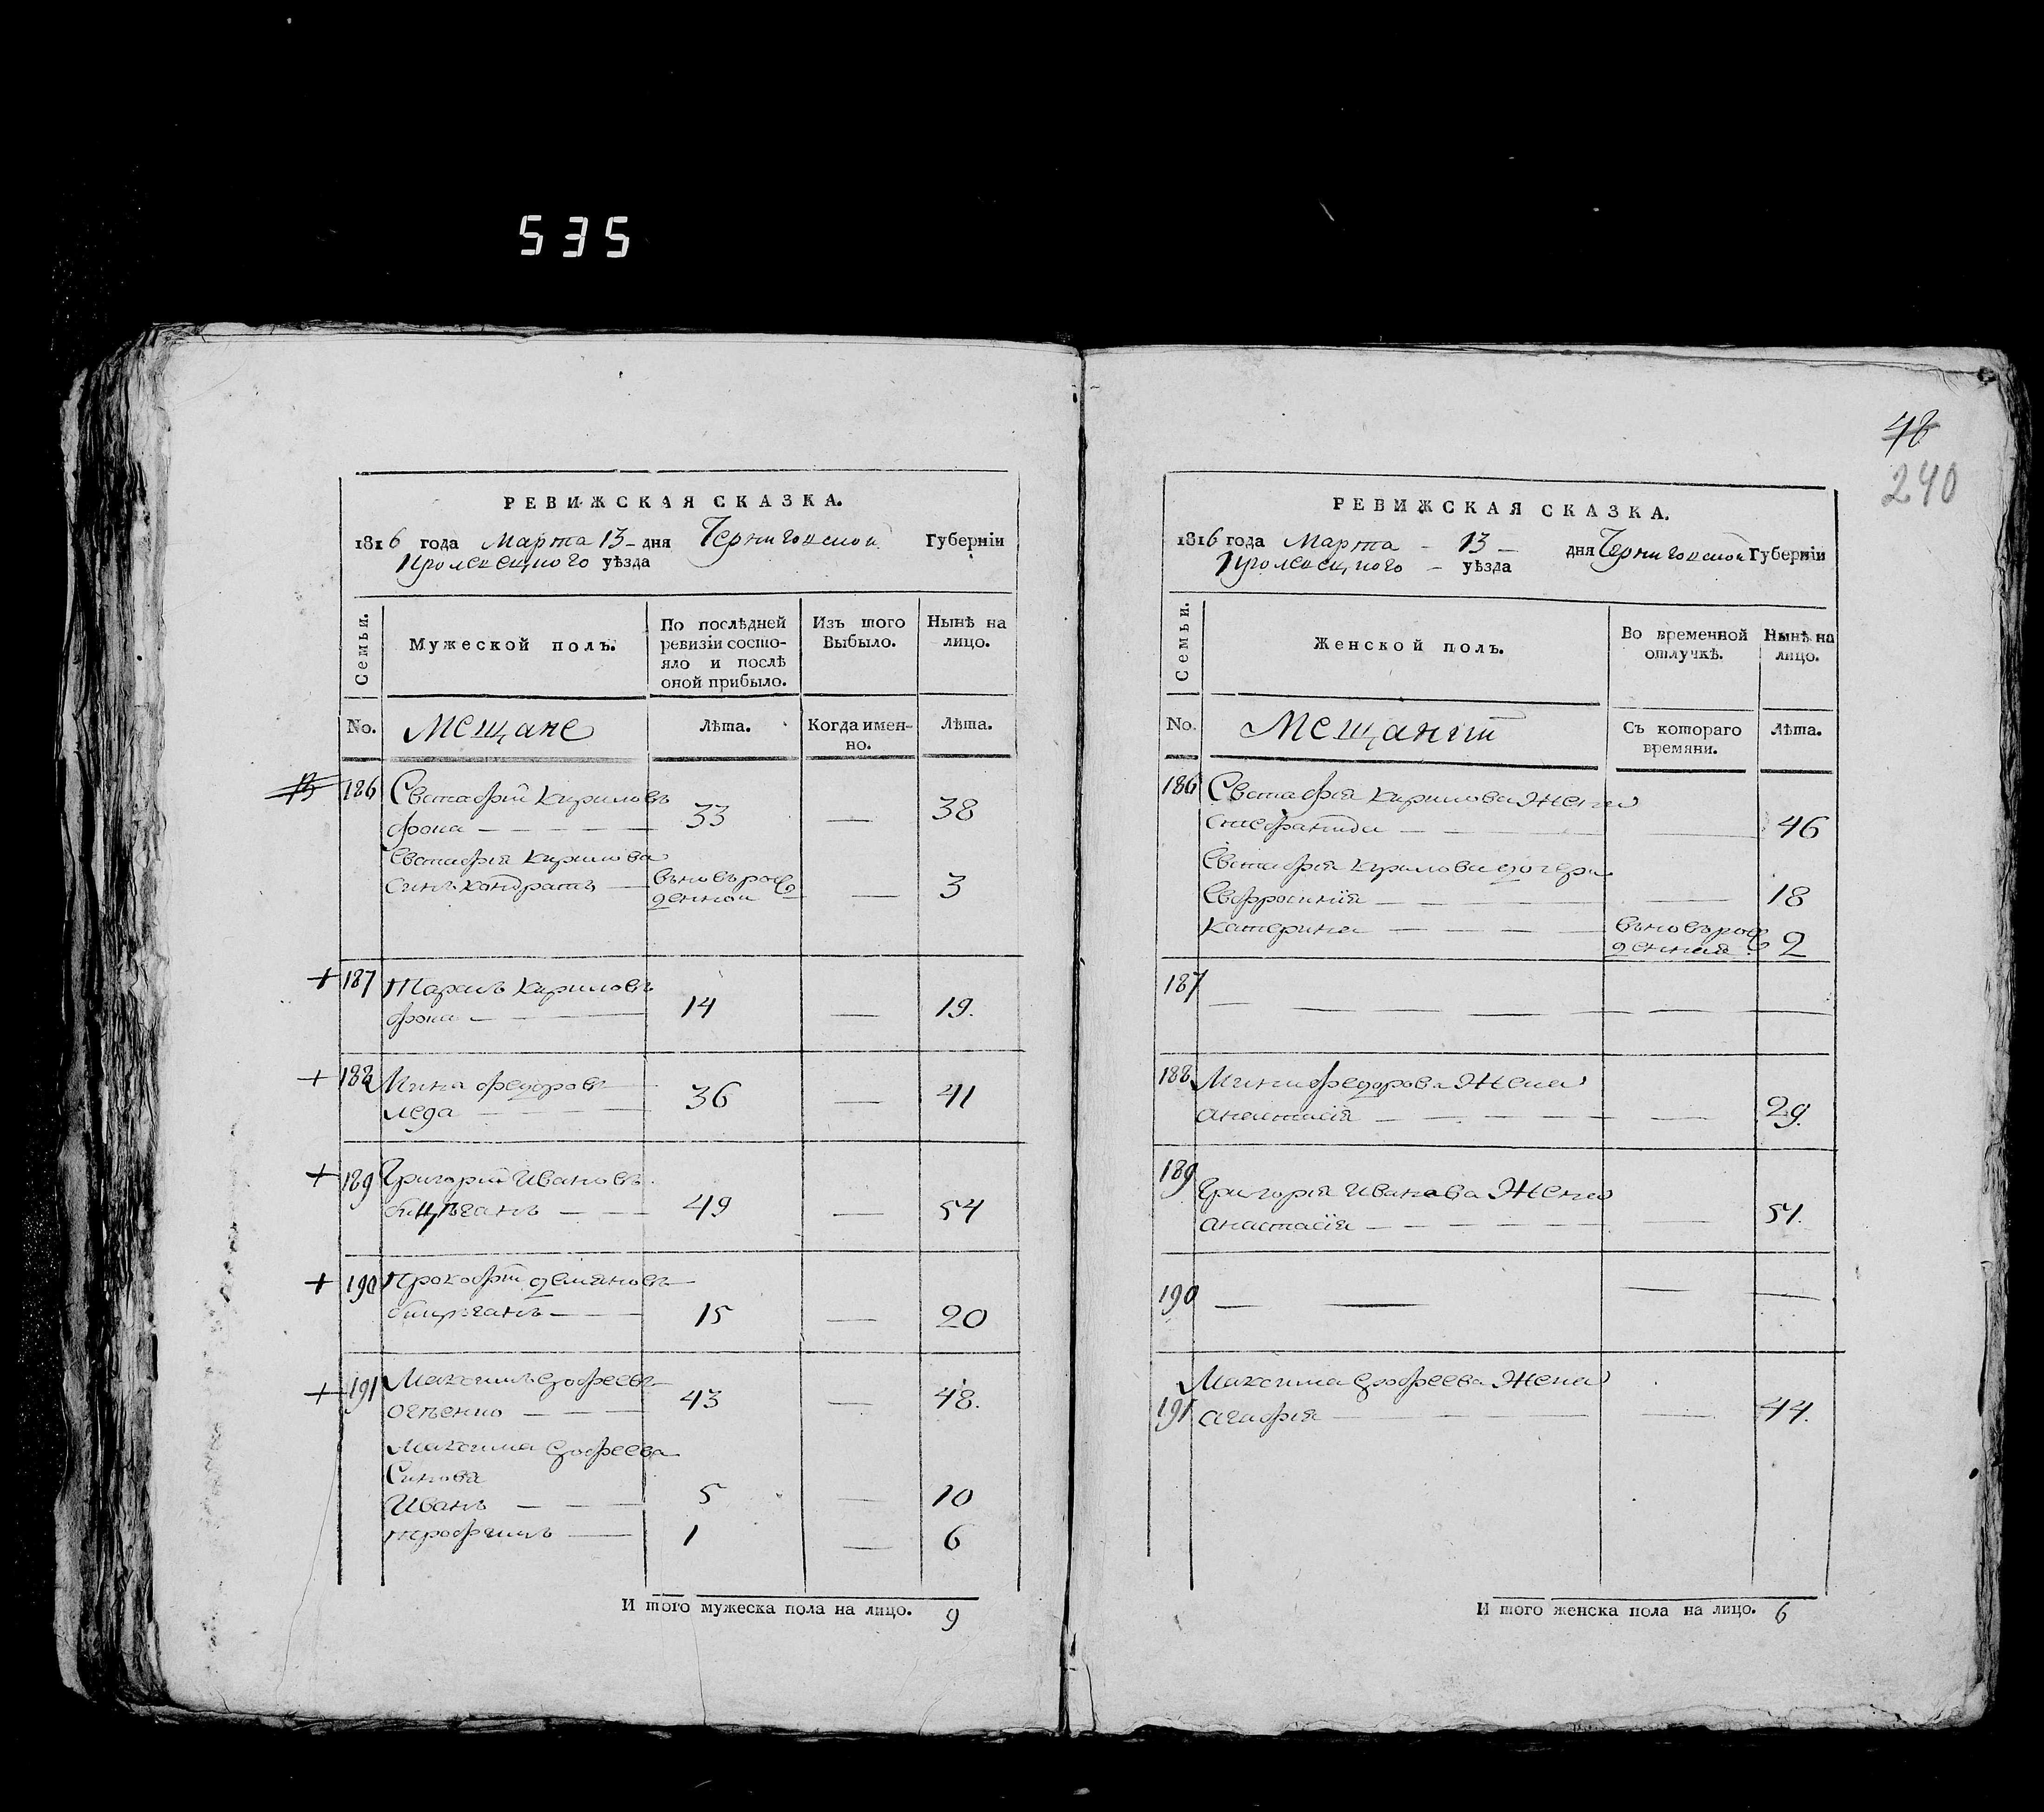 535
48
240
РЕВИЖСКАЯ СКАЗКА.
1816 года Марта 13 – дня Черниговской Губернїи
Кролевецкого уѣзда
Семьи.
Мужеской полъ.
По послѣдней ревизїи состояло и послѣ оной прибыло.
Изъ того Выбыло.
Нынѣ на лицо.
No. Мещане Лѣта. Когда именно. Лѣта.
186 Евстафїй Кириловъ
33 — 38
Евстафїя Кирилова
синъ Кондратъ — въновърож
денной — 3
+ 187 Тарасъ Кириловъ
14 — 19.
+ 188 Мина Федоровъ
36 — 41
+ 189 Григорїй Ивановъ
49 — 54
+ 190 Прокофїй Демяновъ
15 — 20
+ 191 Максимъ
43 — 48.
Максима
Синовя
Иванъ — 5 — 10
Трофимъ — 1 — 6
И того мужеска пола на лицо. 9
РЕВИЖСКАЯ СКАЗКА.
1816 года Марта – 13 – дня Черниговской Губернїи
Кролевецкого – уѣзда
Семьи.
Женской полъ.
Во временной отлучкѣ.
Нынѣ на лицо.
No. Мещанки Съ котораго времяни. Лѣта.
186 Евстафїя Кирилова Жена
— 46
Евстафїя Кирилова дочери
Евфросинїя — 18
Катерина — въновърож
денная 2
187 —
188 Мини Федорова Жена
Анастасїя — 29.
189 Григорїя Иванова Жена
Анастасїя — 51.
190 —
Максима Жена
191 Агафїя — 44.
И того женска пола на лицо. 6